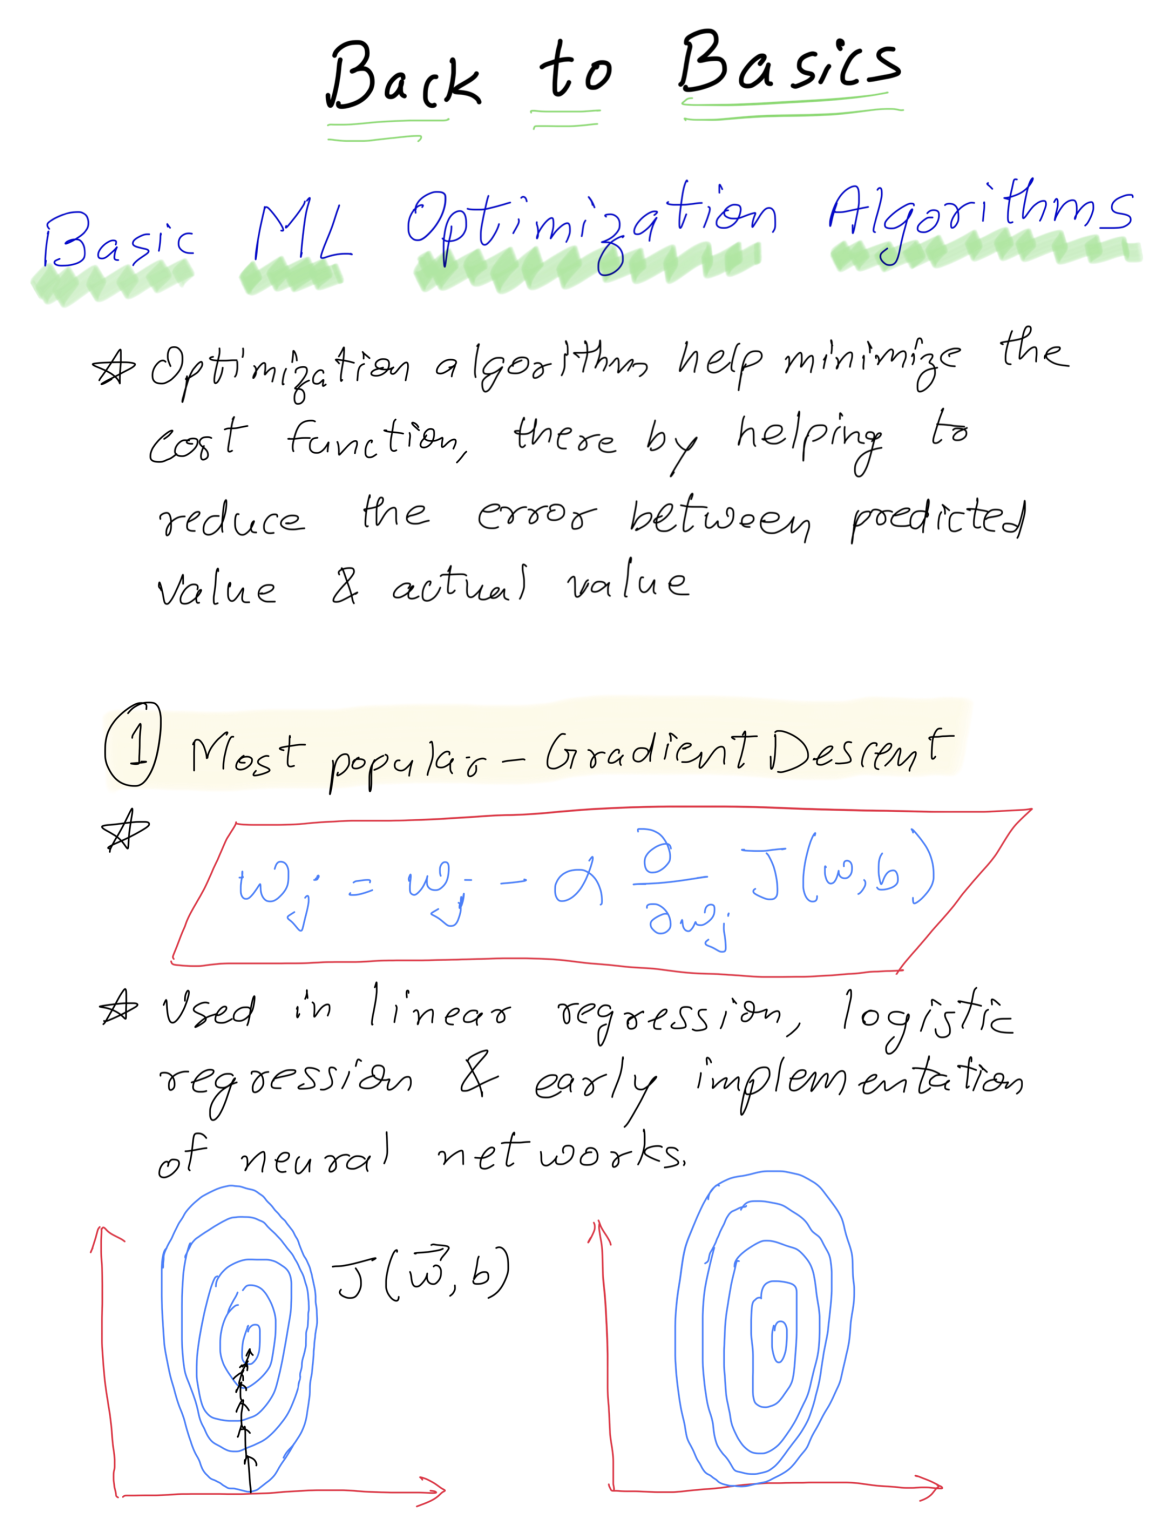 Back to Basics
Basic ML Optimization Algorithms
☆ Optimization algorithm help minimize the
cost function, there by helping to
reduce the error between predicted
value & actual value
① Most popular - Gradient Descent
☆
w_j = w_j - α ∂/∂w_j J(w,b)
☆ Used in linear regression, logistic
regression & early implementation
of neural networks.
J(w⃗, b)